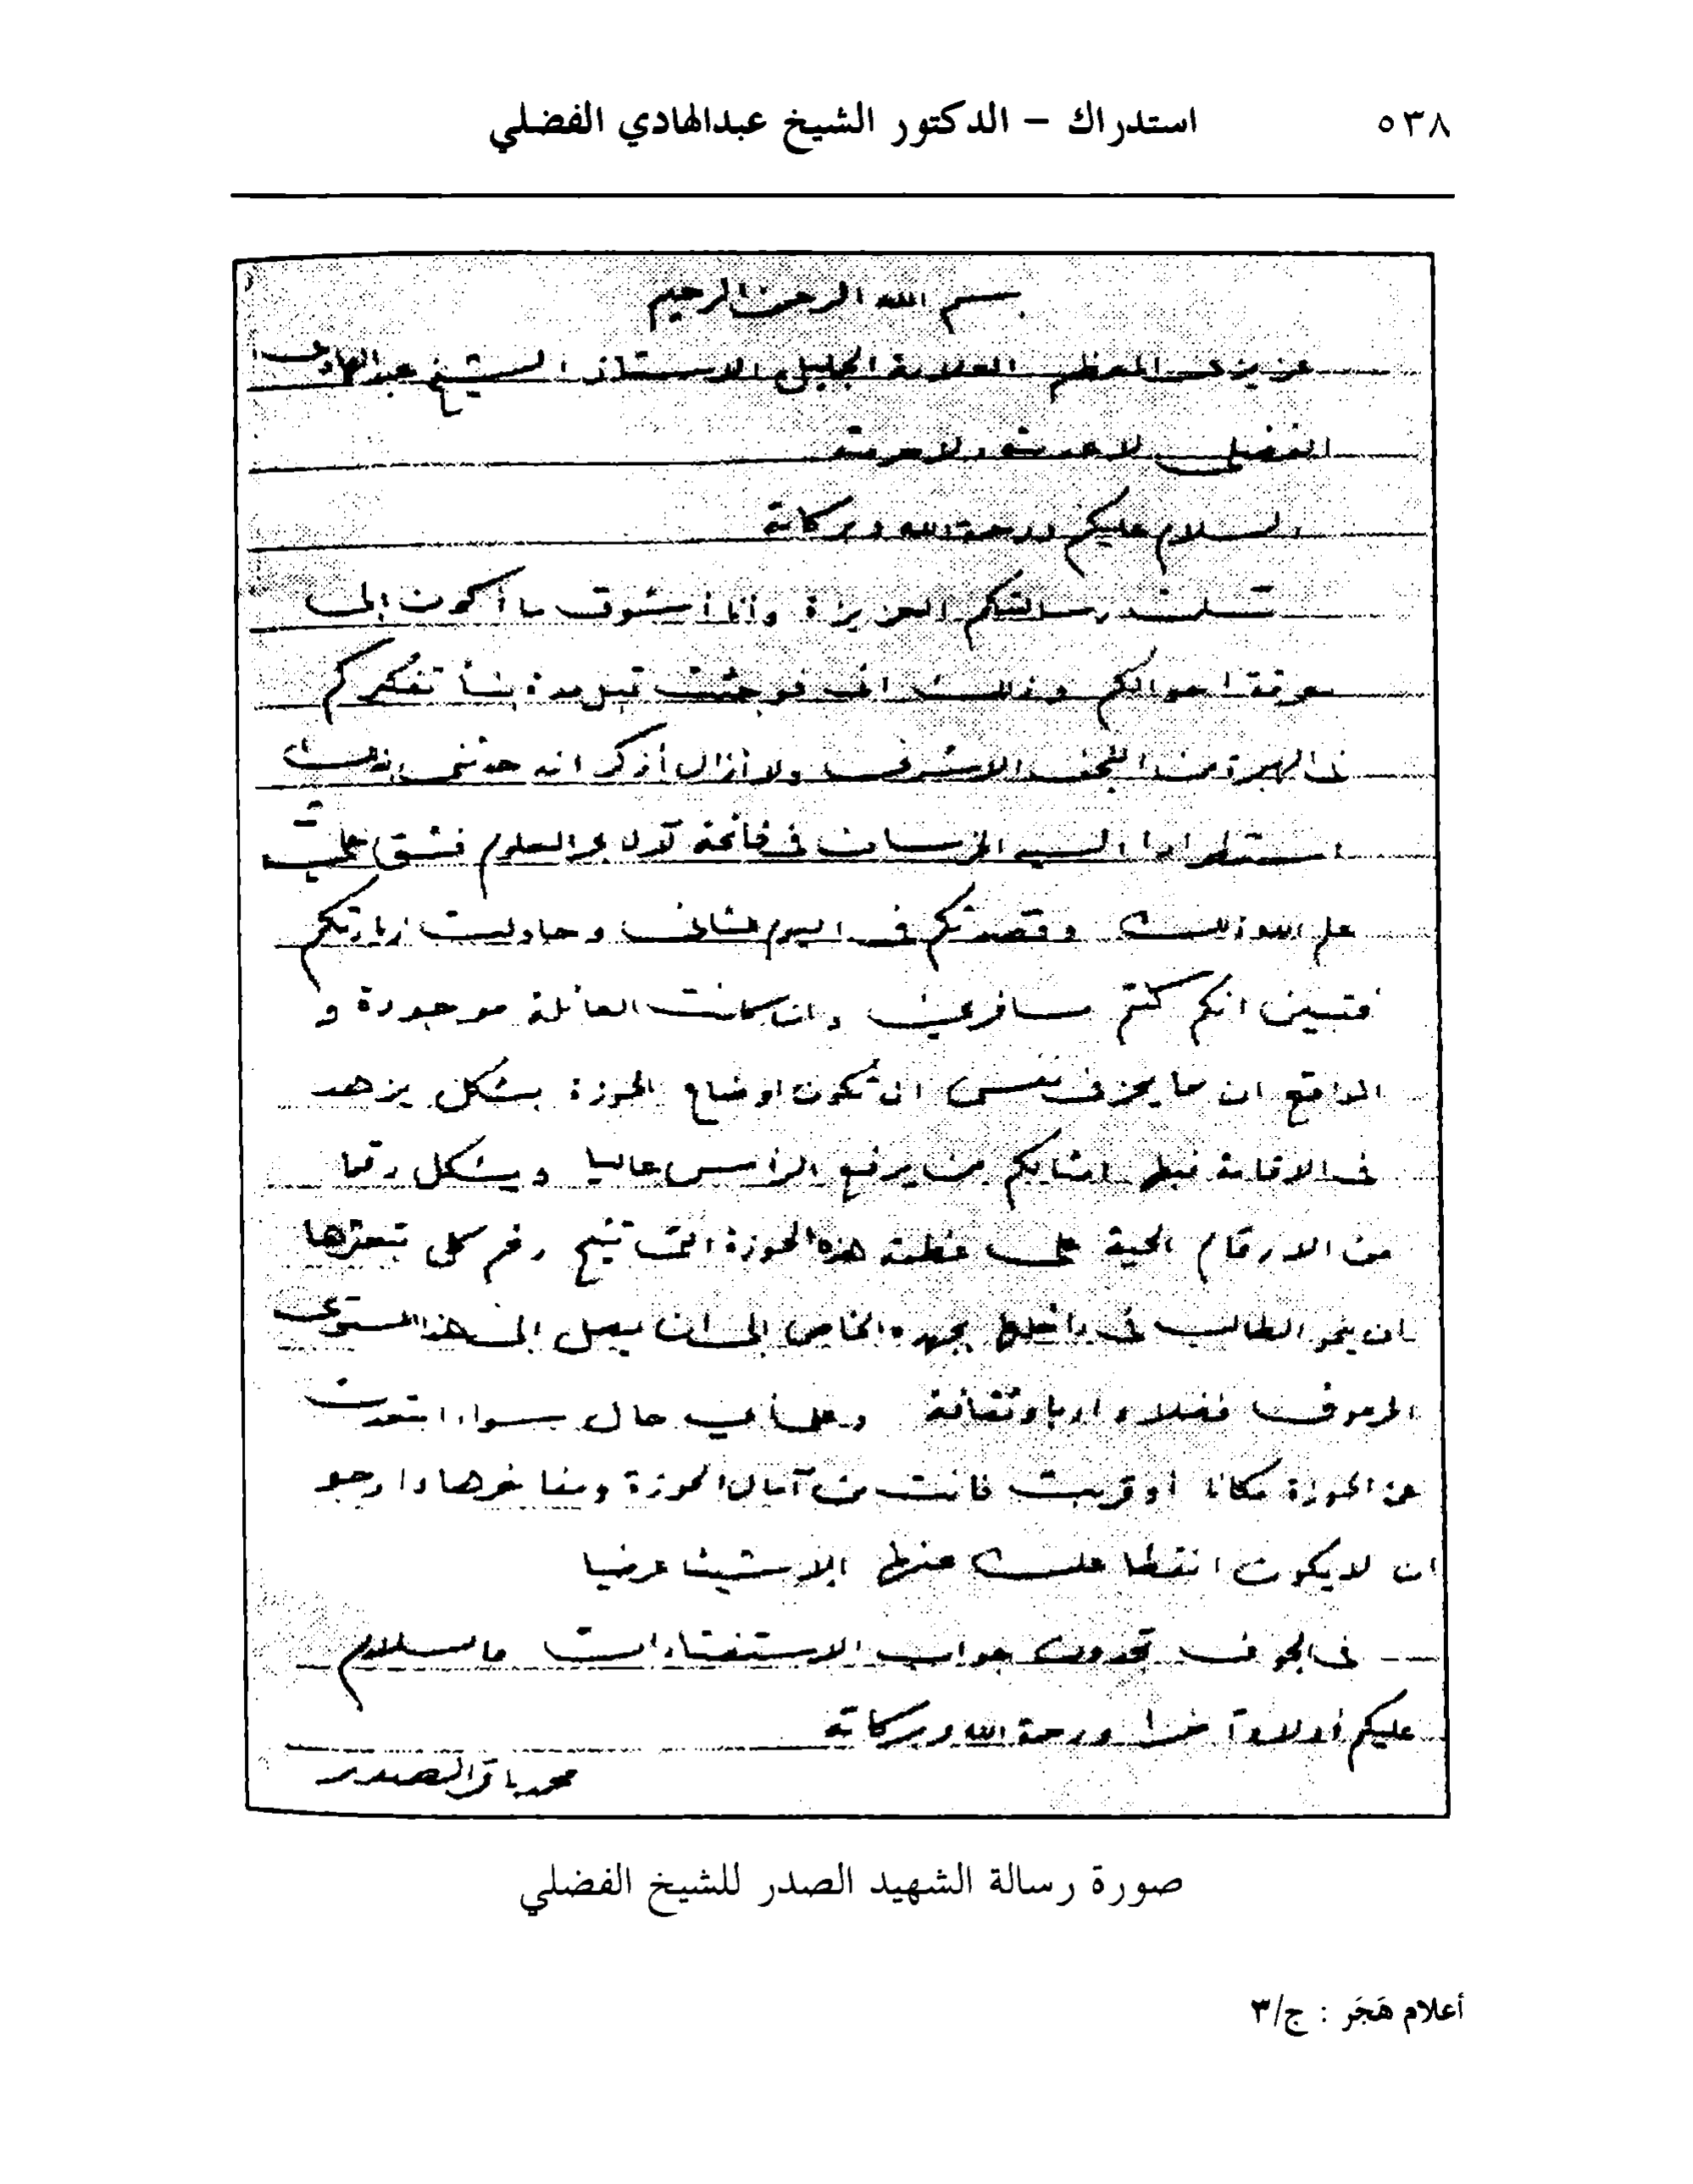 استدراك – الدكتور الشيخ عبدالهادي الفضلي ٥٣٨
بسم الله الرحمن الرحيم
عزيزي المعظم العلامة الجليل الاستاذ الشيخ عبدالهادي
الفضلي لا عدمته ولا حرمته
السلام عليكم ورحمة الله وبركاته
تسلمت رسالتكم العزيزة وأنا أشوق ما أكون إلى
معرفة احوالكم وذلك اني فوجئت قبل مدة بنبأ تفكيركم
في الهجرة من النجف الاشرف ولا أزال أذكر انه حدثني بذلك
استطرادا السيد الخرسان في فاتحة آل بحر العلوم فشق عليّ
علم الله ذلك وقصدتكم في اليوم الثاني وحاولت زيارتكم
فتبين انكم كنتم مسافرين وان كانت العائلة موجودة و
الواقع ان مما يحز في نفسي ان تكون اوضاع الحوزة بشكل يزهد
في الاقامة فيها امثالكم من يرفع الرأس عاليا ويشكل رقما
من الارقام الحية على عظمة هذه الحوزة التي تتيح رغم كل تبعثرها
بان ينمو الطالب في داخلها بجهده الخاص إلى ان يصل إلى هذا المستوى
المرموق فضلا وادبا وثقافة وعلى أي حال سواء ابتعدت
عن الحوزة مكانا أو قربت فانت من آمال الحوزة ومفاخرها وارجو
ان لا يكون انقطاعك عنها إلا شيئا عرضيا
في الجوف تجدون جواب الاستفتاءات والسلام
عليكم أولا وآخرا ورحمة الله وبركاته
محمد باقر الصدر
صورة رسالة الشهيد الصدر للشيخ الفضلي
أعلام هَجَر : ج/٣